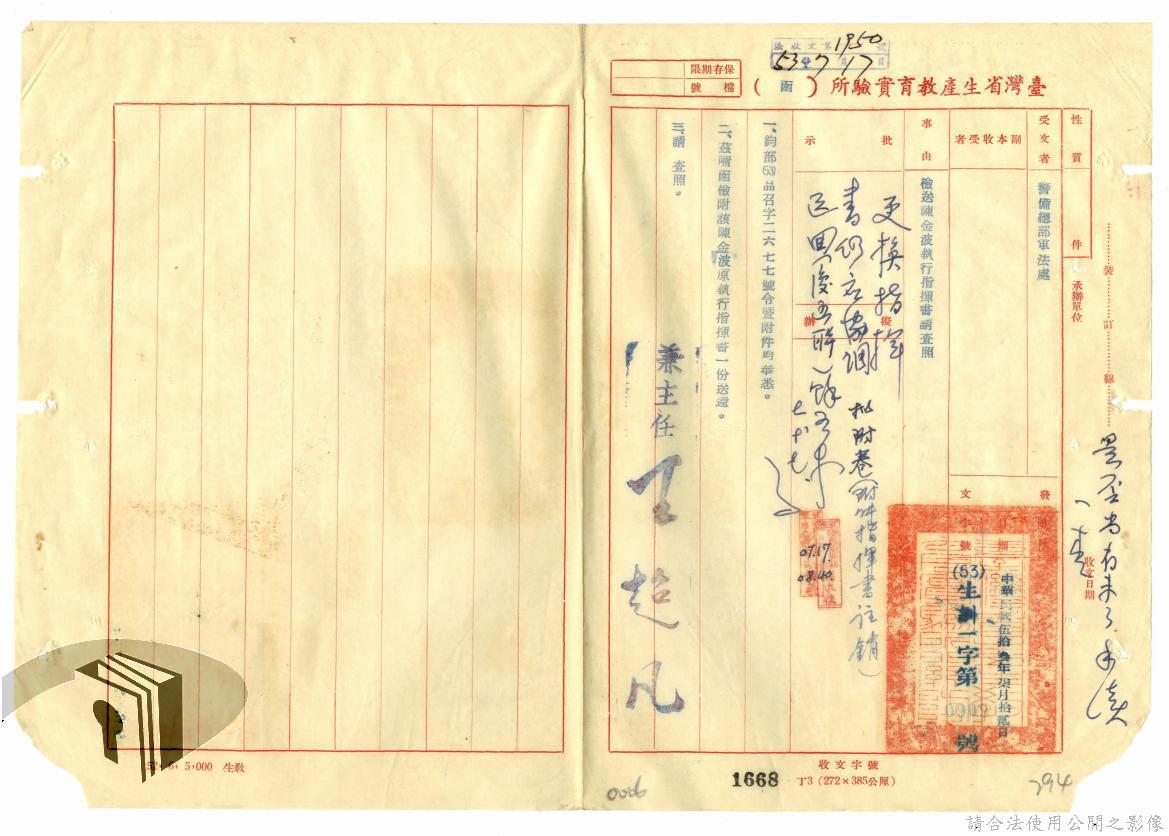 臺灣省生產教育實驗所（函）
保存期限
檔號
法收文第1950號
53年7月17日
性質
件
承辦單位
裝訂線
受文者
警備總部軍法處
副本收受者
發文
日期
中華民國伍拾叁年柒月拾貳日
(53)生訓一字第
號
收文日期
事由
檢送陳金波執行指揮書請查照
批示
擬辦
更換指揮
批附卷（附件指揮書註銷）
07.17.
08.40
一、鈞部53品召字二六七七號令暨附件均奉悉。
二、茲隨函檢附該陳金波原執行指揮書一份送還。
三、請 查照。
兼主任 王超凡
收文字號
丁3（272×385公厘）
1668
0006
794
52．6．5,000 生教
請合法使用公開之影像